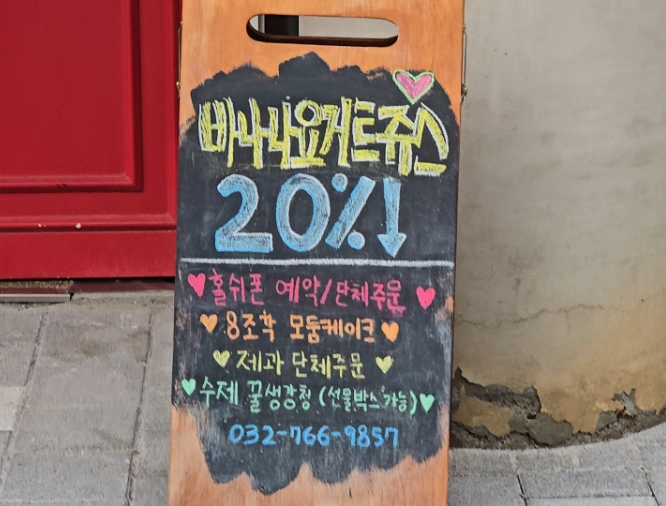 바나나요거트쥬스
20%↓
홀쉬폰 예약/단체주문
8조각 모둠케이크
제과 단체주문
수제 꿀생강청 (선물박스가능)
032-766-9857